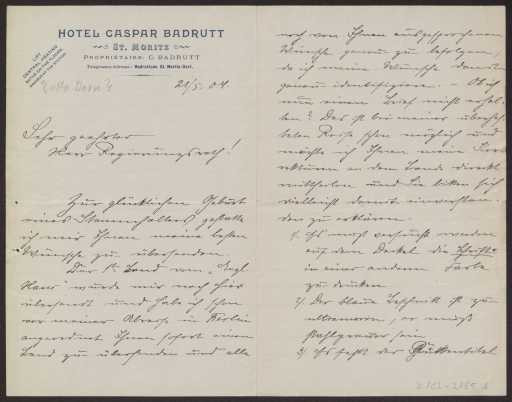 LIFT
CENTRAL HEATING
HOTEL CASPAR BADRUTT
ST. MORITZ
PROPRIÉTAIRE: C. BADRUTT
Telegramm-Adresse: Badrutium St. Moritz-Dorf.
21/5. 04.
Sehr geehrter
Herr Regierungsrath!
Zur glücklichen Geburt
eines Stammhalters gestatte
ich mir Ihnen meine besten
Wünsche zu übersenden.
Der Band von „Engl.
Haus" wurde mir noch hier
übersandt und habe ich schon
vor meiner Abreise in Berlin
angeordnet Ihnen sofort einen
Band zu übersenden und alle
noch von Ihnen ausgesprochenen
Wünsche genau zu befolgen,
da ich meine Wünsche damit
genau identifiziere. – Ob ich
nun einen Brief nicht erhal-
ten? Das ist bei meiner
Reise schon möglich und
möchte ich Ihnen meine
an den Band direkt
mittheilen und Sie bitten sich
vielleicht damit einverstan-
den zu erklären.
1. Es muß versucht werden
auf dem Deckel die Schrift
in einer anderen Farbe
zu drucken
2) Der blaue Beschnitt ist zu
ultramarin, er muß
stahlgrauer sein
3) Es fehlt der Rückentitel